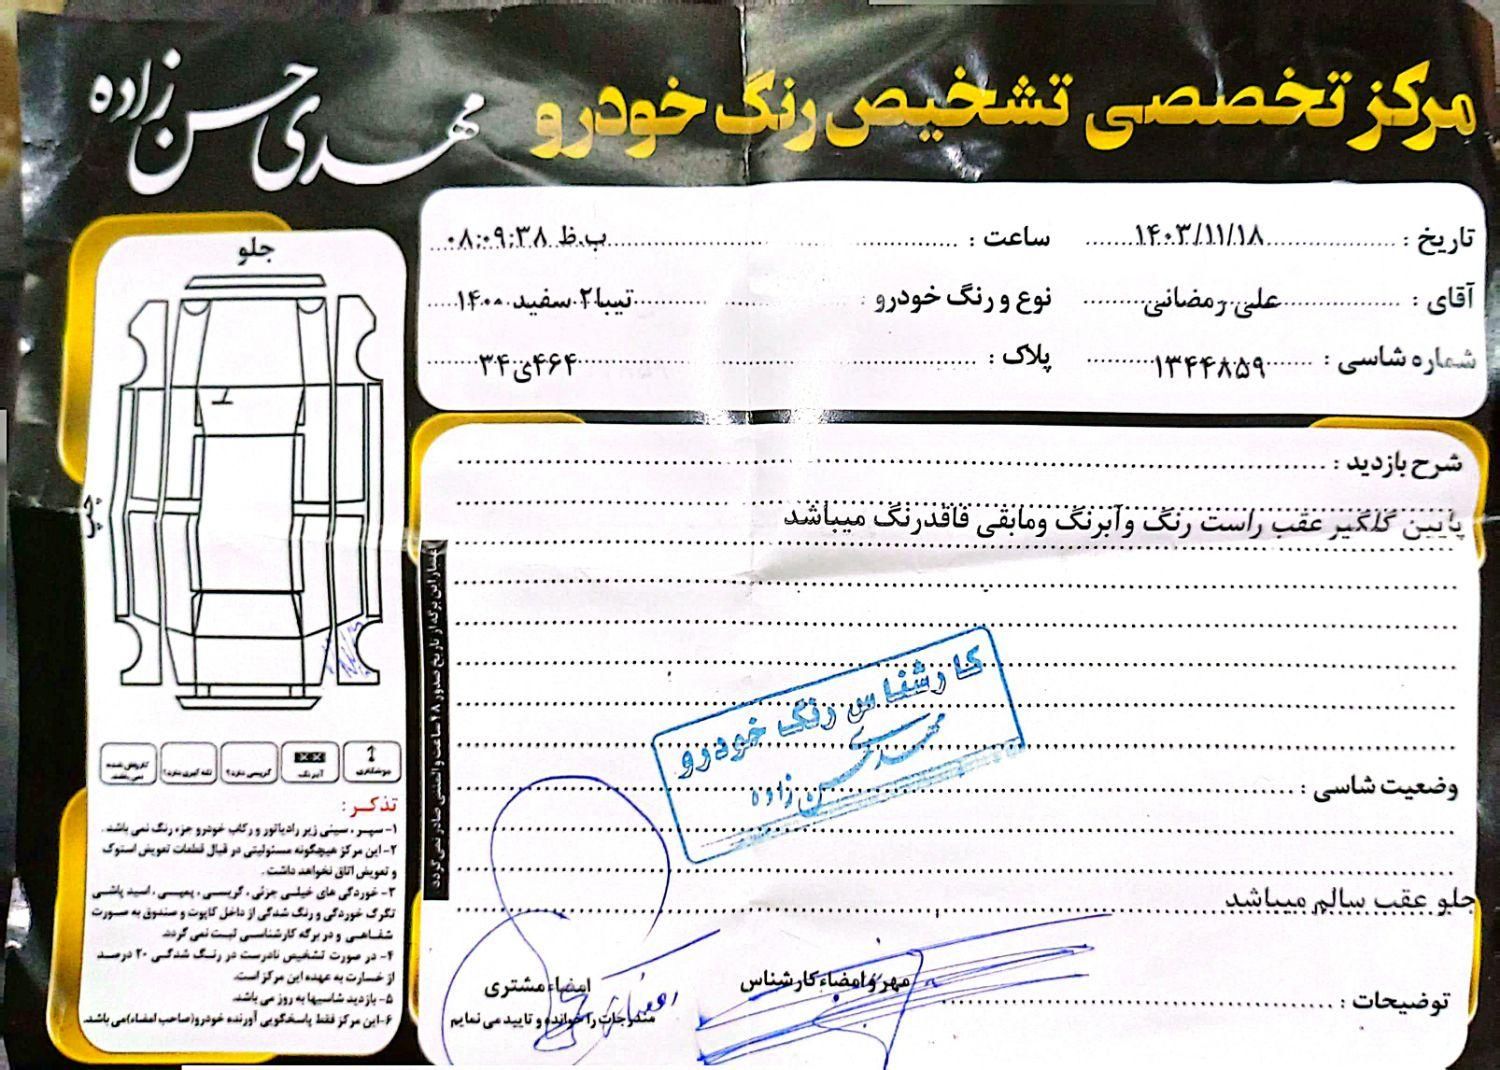 مرکز تخصصی تشخیص رنگ خودرو مهدی حسن زاده
تاریخ : ۱۴۰۳/۱۱/۱۸ ساعت : ۰۸:۰۹:۳۸ ب.ظ
آقای : علی رمضانی نوع و رنگ خودرو : تیبا۲ سفید ۱۴۰۰
شماره شاسی : ۱۳۴۴۸۵۹ پلاک : ۴۶۴ی۳۴
شرح بازدید :
پایین گلگیر عقب راست رنگ وآبرنگ ومابقی فاقدرنگ میباشد
کارشناس رنگ خودرو
مهدی حسن زاده
وضعیت شاسی :
جلو عقب سالم میباشد
توضیحات :
مهر و امضاء کارشناس
امضاء مشتری
مندرجات را خوانده و تایید می نمایم
اعتبار این برگه از تاریخ صدور ۴۸ ساعت و المثنی صادر نمی گردد
جلو
چپ
جوشکاری
آبرنگ
گریسی ندارد؟
لکه گیری ندارد؟
کارواش شده نمی باشد
تذکر :
۱- سپر ، سینی زیر رادیاتور و رکاب خودرو جزء رنگ نمی باشد .
۲- این مرکز هیچگونه مسئولیتی در قبال قطعات تعویض استوک
و تعویض اتاق نخواهد داشت .
۳- خوردگی های خیلی جزئی ، گریسی ، پمپی ، اسید پاشی
تگرگ خوردگی و رنگ شدگی از داخل کاپوت و صندوق به صورت
شفاهی و در برگه کارشناسی ثبت نمی گردد.
۴- در صورت تشخیص نادرست در رنگ شدگی ۲۰ درصد
از خسارت به عهده این مرکز است.
۵- بازدید شاسیها به روز می باشد.
۶- این مرکز فقط پاسخگویی آورنده خودرو (صاحب امضاء) می باشد.